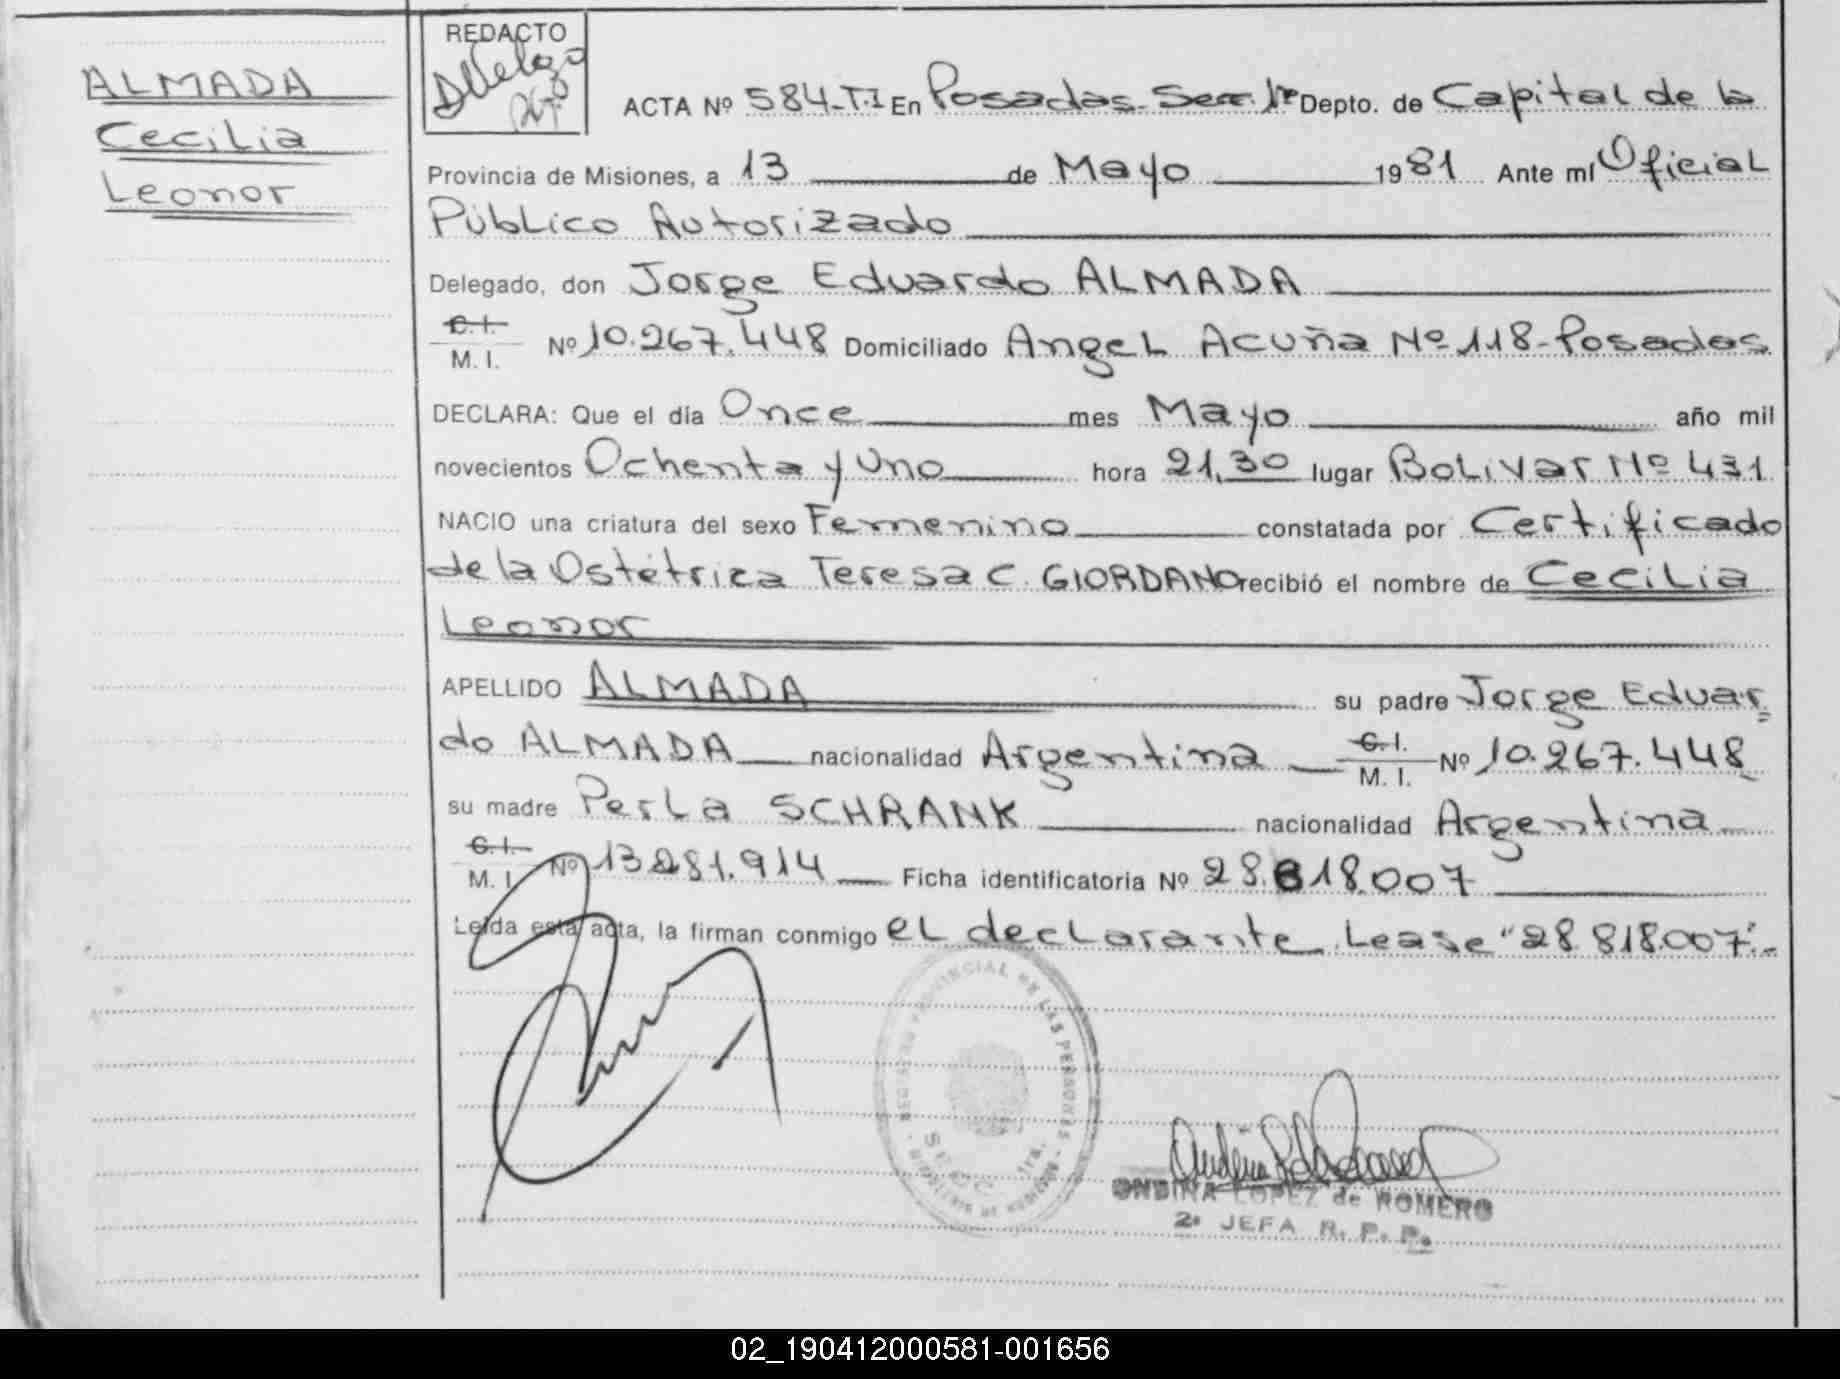 ALMADA
Cecilia
Leonor
REDACTO
ACTA Nº 584-T.I En Posadas-Secc. 1ª Depto. de Capital de la
Provincia de Misiones, a 13 de Mayo 1981 Ante mí Oficial
Público Autorizado
Delegado, don Jorge Eduardo ALMADA
C. I.
M. I. Nº 10.267.448 Domiciliado Angel Acuña Nº 118-Posadas
DECLARA: Que el día Once mes Mayo año mil
novecientos Ochenta y Uno hora 21,30 lugar Bolivar Nº 431
NACIO una criatura del sexo Femenino constatada por Certificado
de la Ostétrica Teresa C. GIORDANO recibió el nombre de Cecilia
Leonor
APELLIDO ALMADA su padre Jorge Eduar
do ALMADA nacionalidad Argentina C. I. M. I. Nº 10.267.448
su madre Perla SCHRANK nacionalidad Argentina
C. I.
M. I. Nº 13.281.914 Ficha identificatoria Nº 28.818.007
Leída esta acta, la firman conmigo el declarante. Lease "28.818.007".-
REGISTRO PROVINCIAL DE LAS PERSONAS
1ra.
ONDINA LOPEZ de ROMERO
2ª JEFA R. P. P.
02_190412000581-001656